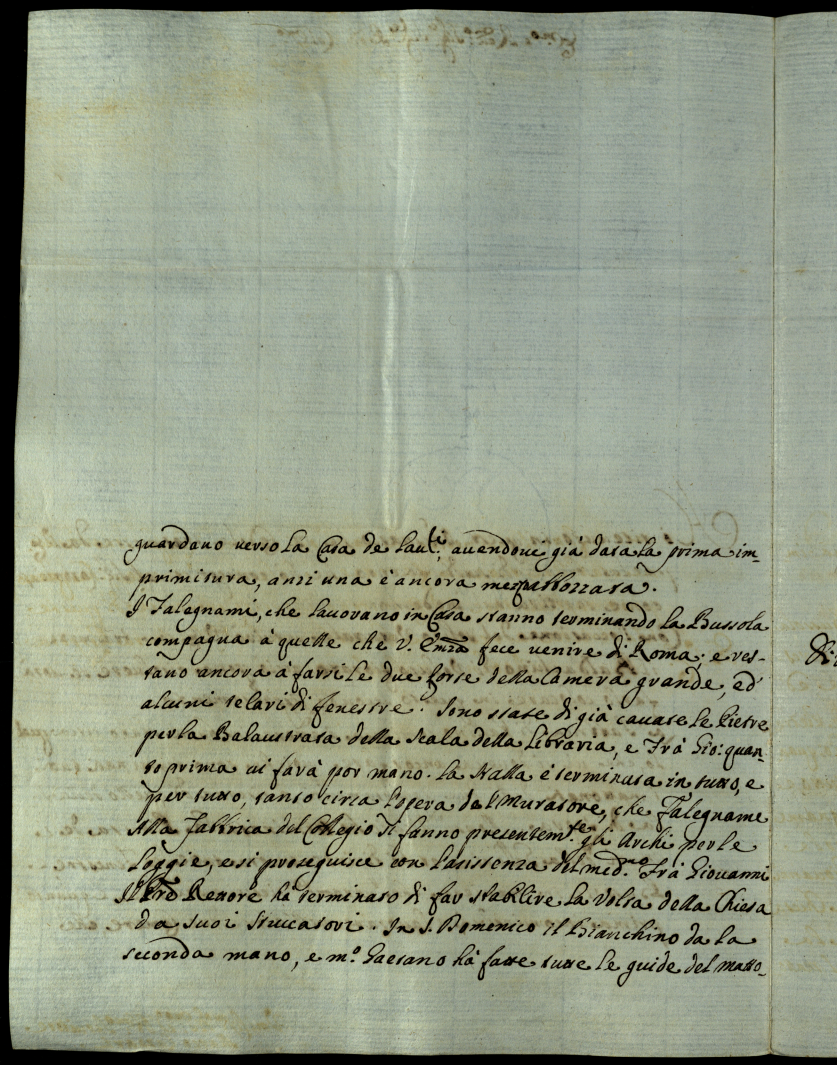 guardano verso la Casa de Lauti, avendovi già data la prima im-
primitura, anzi una è ancora mezz'abbozzata.
I Falegnami, che lavorano in Casa stanno terminando la Bussola
compagna à quelle che V. Emza fece venire di Roma; e res-
tano ancora à farsi le due Porte della Camera grande, ed
alcuni telari di fenestre. Sono state di già cavate le Pietre
per la Balaustrata della Scala della Libraria, e Frà Gio: quan-
to prima vi farà por mano. La Stalla è terminata in tutto, e
per tutto, tanto circa l'opera del Muratore, che Falegname
Alla Fabbrica del Collegio si fanno presentemte gli Archi per le
Loggie, e si proseguisce con l'assistenza del medmo Frà Giovanni
Il Pre Rettore hà terminato di far stabilire la Volta della Chiesa
da suoi Stuccatori. In S. Domenico il Bianchino dà la
seconda mano, e mo Gaetano hà fatte tutte le guide del matto-